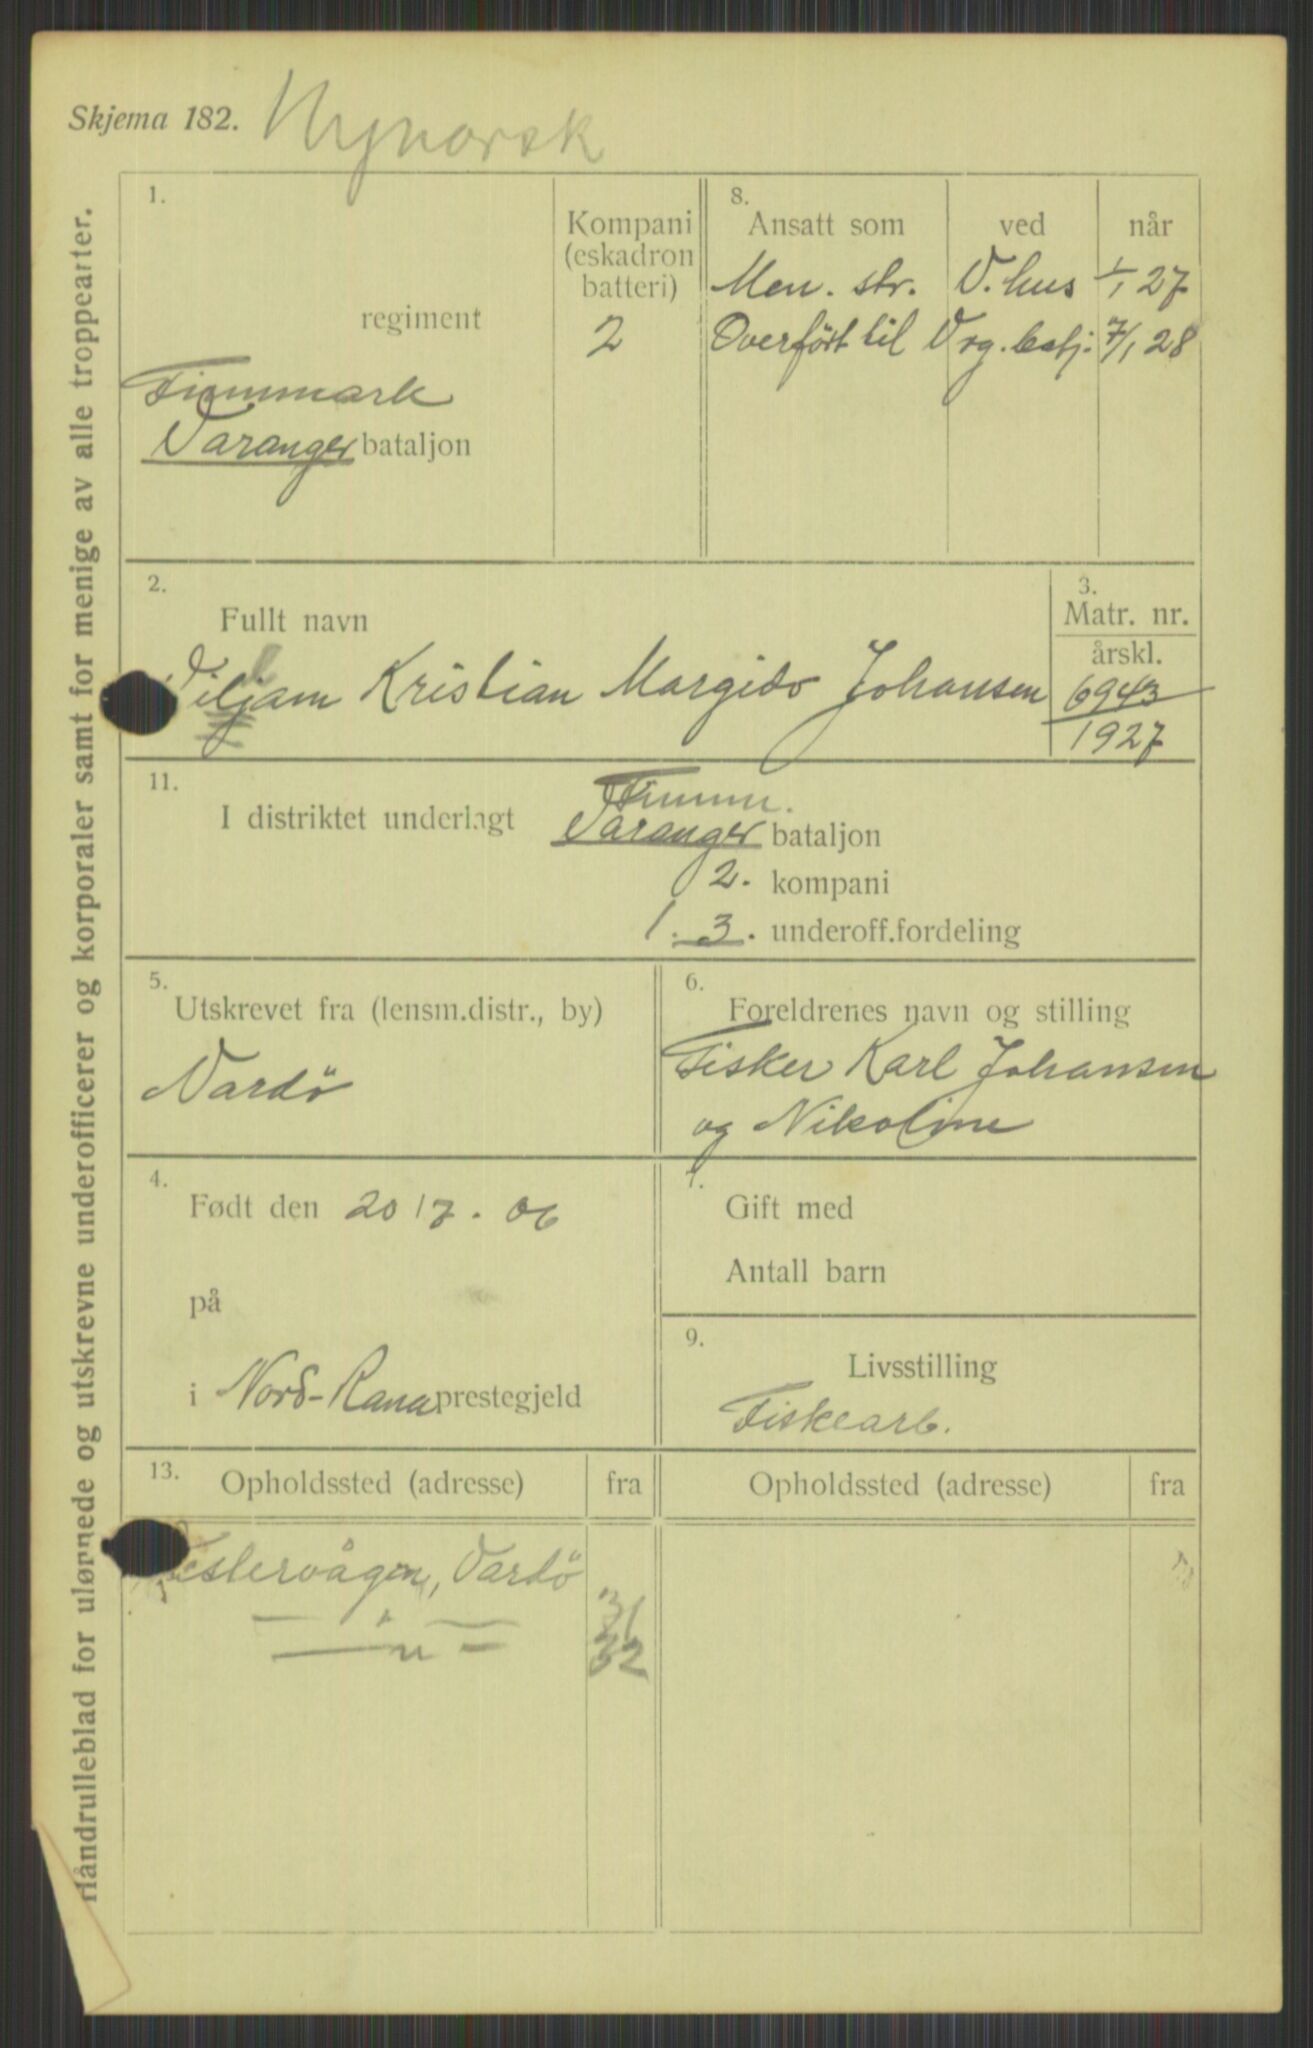 Skjema 182. Nynorsk
Håndrulleblad for ulønnede og utskrevne underofficerer og korporaler samt for menige av alle troppearter.
1.
regiment
Finnmark
Varanger bataljon
Kompani
(eskadron
batteri)
2
8.
Ansatt som ved når
Men. str. V. hus 1/1 27
Overført til Vrg. batj. 7/1 28
2.
Fullt navn
Viljam Kristian Margido Johansen
3.
Matr. nr.
årskl.
6943
1927
11.
Finnm.
I distriktet underlagt Varanger bataljon
2. kompani
1. 3. underoff.fordeling
5.
Utskrevet fra (lensm.distr., by)
Vardö
6.
Foreldrenes navn og stilling
Fisker Karl Johansen
og Nikoline
4.
Født den 20/7. 06
på
i Nord-Rana prestegjeld
7.
Gift med
Antall barn
9.
Livsstilling
Fiskearb.
13.
Opholdssted (adresse) fra Opholdssted (adresse) fra
Vardö
31
— " — 32